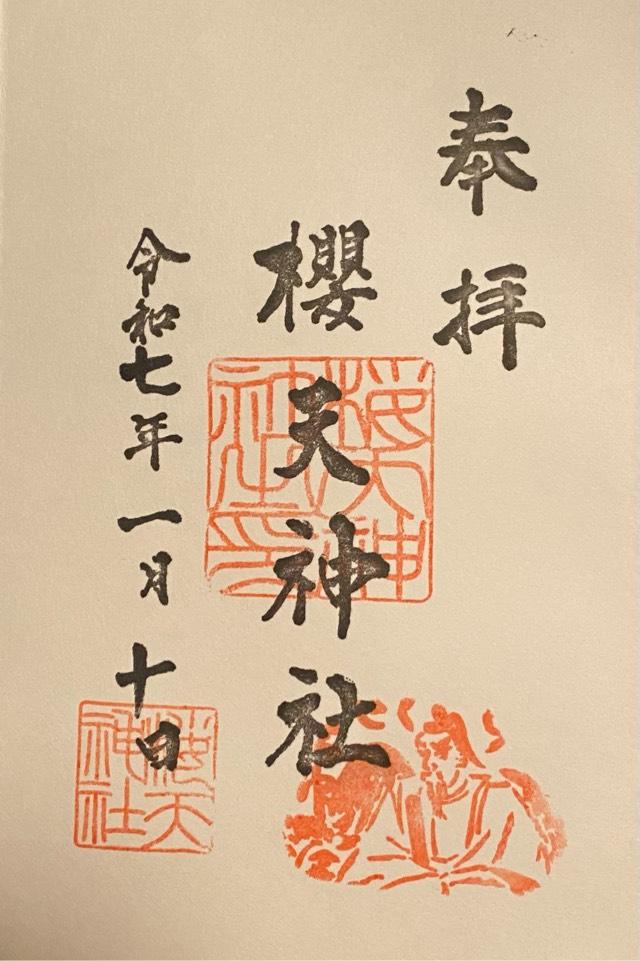 奉拝
櫻天神社
令和七年一月十日
桜天神社印
桜天神社